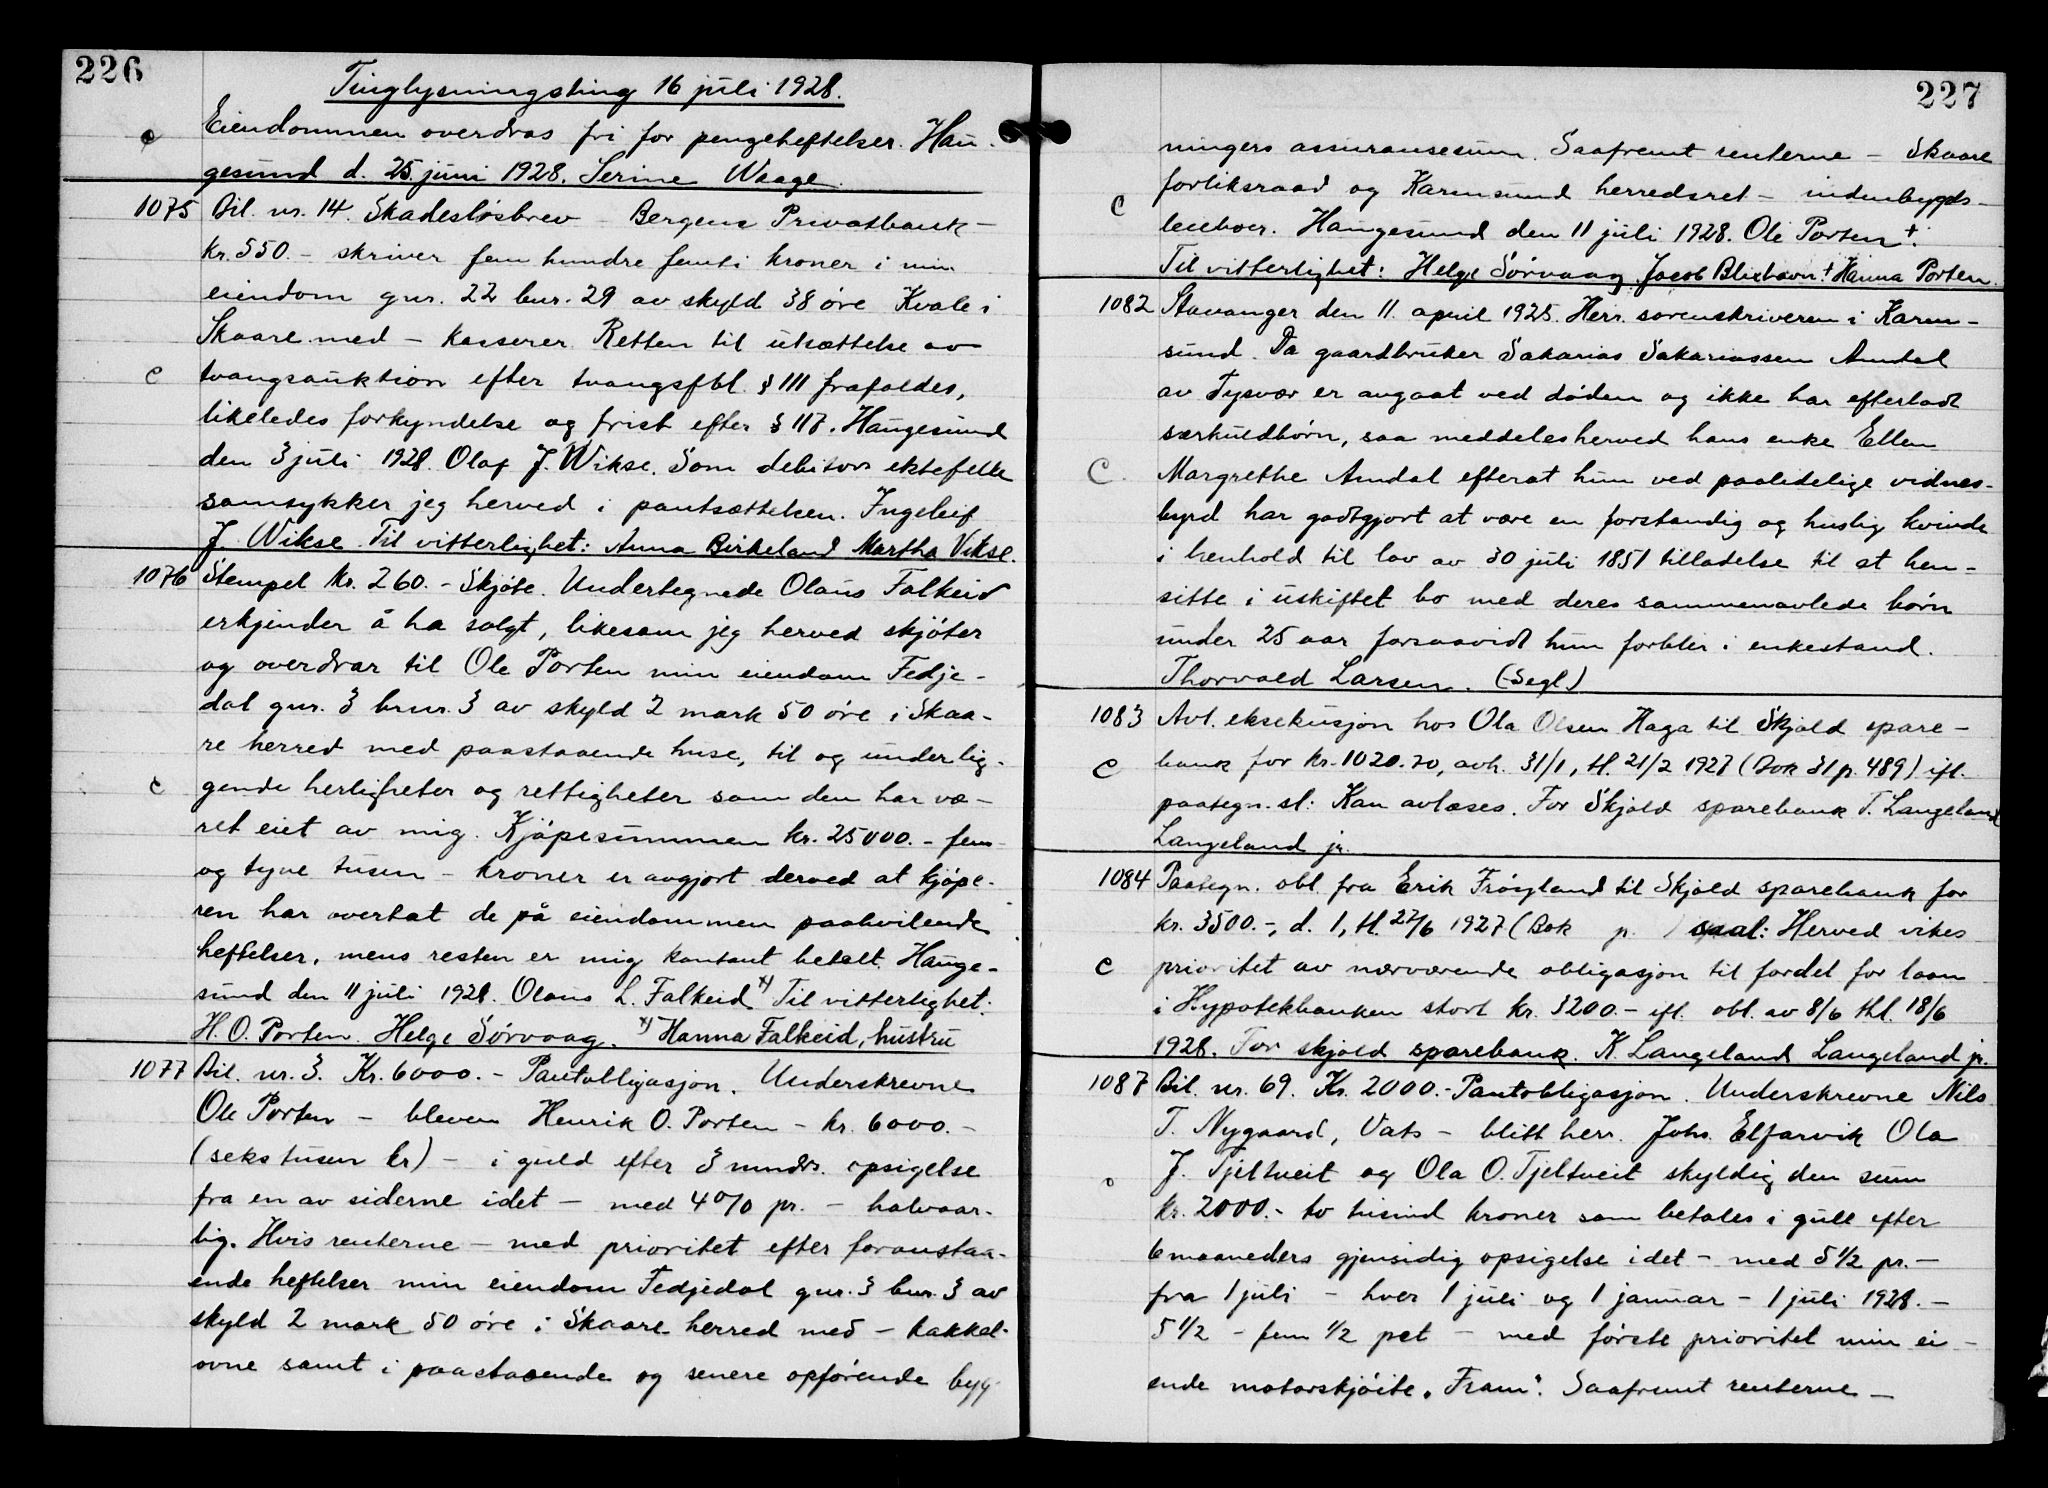 226
Tinglysningsting 16 juli 1928.
c Eiendommen overdras fri for pengeheftelser. Hau-
gesund d. 25. juni 1928. Serine Waage.
1075 Bil. nr. 14. Skadesløsbrev Bergens Privatbank -
kr. 550.- skriver fem hundre femti kroner i min
eiendom gnr. 22 bnr. 29 av skyld 38 øre Kvale i
Skaare med - kasserer. Retten til utsættelse av
c tvangsauktion efter tvangsfbl. § 111 frafaldes,
likeledes forkyndelse og frist efter § 117. Haugesund
den 3 juli 1928. Olaf J. Wikse. Som debitors ektefelle
samtykker jeg herved i pantsættelsen. Ingeleif
J. Wikse. Til vitterlighet: Anna Birkeland Martha Vikse.
1076 Stempel kr. 260.- Skjøte. Undertegnede Olaus Falkeid
erkjender å ha solgt, likesom jeg herved skjøter
og overdrar til Ole Porten min eiendom Fedje-
dal gnr. 3 brnr. 3 av skyld 2 mark 50 øre i Skaa-
re herred med paastaaende huse, til og underlig-
c gende herligheter og rettigheter som den har væ-
ret eiet av mig. Kjøpesummen kr. 25000.- fem-
og tyve tusen - kroner er avgjort derved at kjøpe-
ren har overtat de på eiendommen paahvilende
heftelser, mens resten er mig kontant betalt. Hauge-
sund den 11 juli 1928. Olaus L. Falkeid x) Til vitterlighet:
H. O. Porten. Helge Sørvaag. x) Hanna Falkeid, hustru
1077 Bil. nr. 3. Kr. 6000.- Pantobligasjon. Underskrevne
Ole Porten - bleven Henrik O. Porten - kr. 6000.-
(seks tusen kr) - i guld efter 3 mndrs. opsigelse
fra en av siderne idet - med 4% pr. - halvaar-
lig. Hvis renterne - med prioritet efter foranstaa-
ende heftelser min eiendom Fedjedal gnr. 3 bnr. 3 av
skyld 2 mark 50 øre i Skaare herred med - kakkel-
ovne samt i paastaaende og senere opførende byg-
227
ningers assuransesum. Saafremt renterne - Skaare
c forliksraad og Karmsund herredsret - indenbygds-
leieboer. Haugesund den 11 juli 1928. Ole Porten +.
Til vitterlighet: Helge Sørvaag. Jacob Blixhavn. + Hanna Porten.
1082 Stavanger den 11. april 1925. Herr. sorenskriveren i Karm-
sund. Da gaardbruker Sakarias Sakariassen Amdal
av Tysvær er avgaat ved døden og ikke har efterladt
særkuldbørn, saa meddeles herved hans enke Ellen
C. Margrethe Amdal efterat hun ved paalidelige vidnes-
byrd har godtgjort at være en forstandig og huslig kvinde
i henhold til lov av 30 juli 1851 tilladelse til at hen-
sitte i uskiftet bo med deres sammenavlede børn
under 25 aar forsaavidt hun forblir i enkestand.
Thorvald Larsen. (Segl.)
1083 Avl. eksekusjon hos Ola Olsen Haga til Skjold spare-
c bank for kr. 1020.70, avh. 31/1, tl. 21/2 1927 (Bok 31 p. 489) ifl.
paategn. sl: Kan avlæses. For Skjold sparebank T. Langeland
Langeland jr.
1084 Paategn. obl. fra Erik Frøyland til Skjold sparebank for
kr. 3500.-, d. 1, tl. 27/6 1927 (Bok p. ) saal: Herved vikes
c prioritet av nærværende obligasjon til fordel for laan
i Hypotekbanken stort kr. 3200.- ifl. obl. av 8/6 thl. 18/6
1928. For skjold sparebank. K. Langeland Langeland jr.
1087 Bil. nr. 69. Kr. 2000.- Pantobligasjon. Underskrevne Nils
T. Nygaard, Vats - blitt herr. Johs. Elfarvik Ola
c J. Tjeltveit og Ola O. Tjeltveit skyldig den sum
kr. 2000.- to tusind kroner som betales i gull efter
6 maaneders gjensidig opsigelse idet - med 5 1/2 pr. -
fra 1 juli - hver 1 juli og 1 januar - 1 juli 1928. -
5 1/2 - fem 1/2 pct - med første prioritet min ei-
ende motorskjøite "Fram". Saafremt renterne -